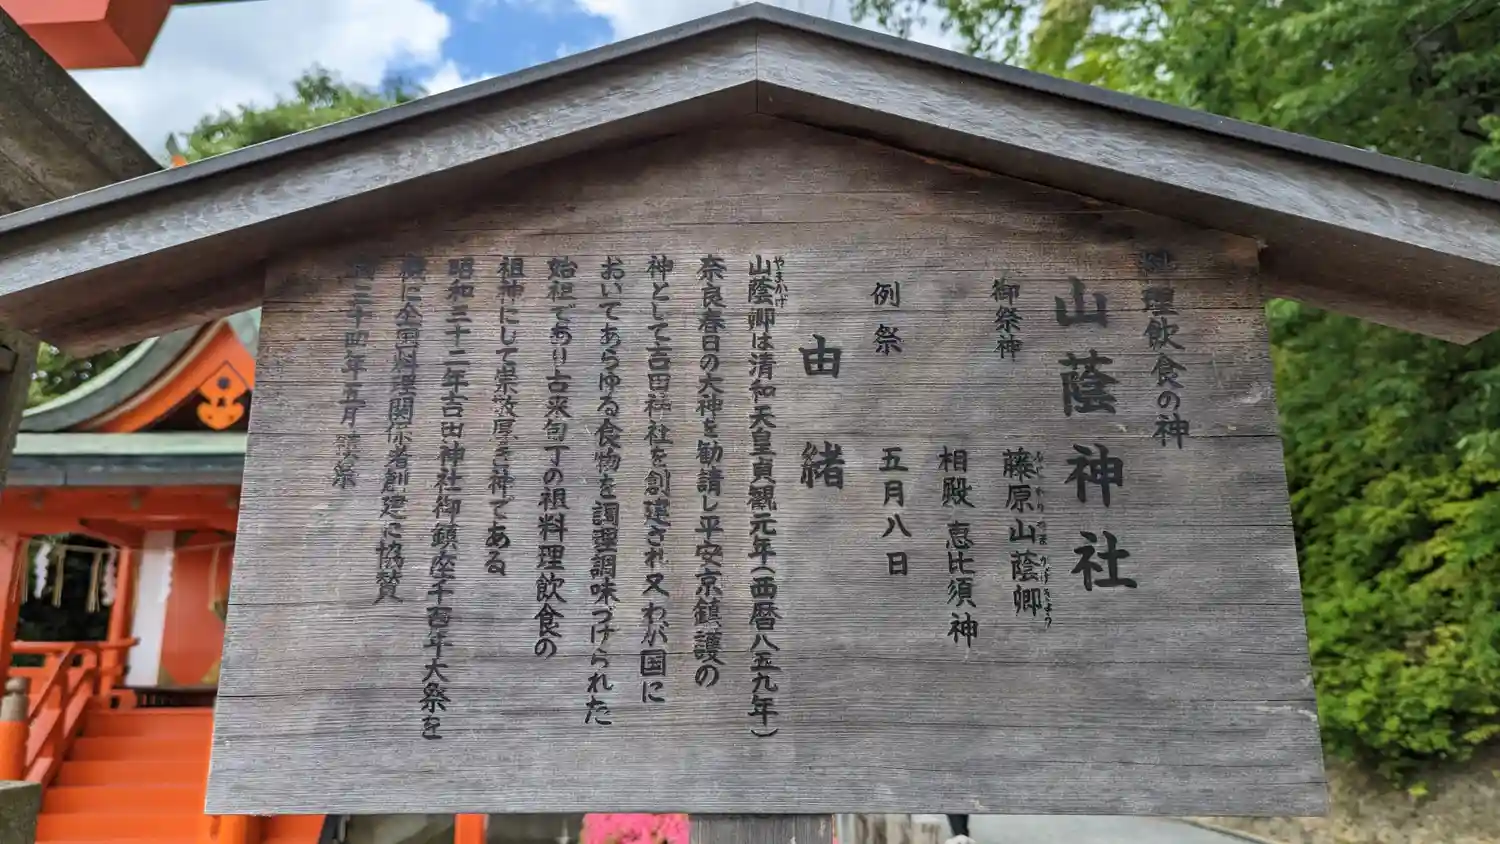 料理飲食の神
山蔭神社
御祭神 藤原山蔭卿
ふじわらやまかげきょう
相殿 恵比須神
例祭 五月八日
由緒
やまかげ
山蔭卿は清和天皇貞観元年(西暦八五九年)
奈良春日の大神を勧請し平安京鎮護の
神として吉田神社を創建され又わが国に
おいてあらゆる食物を調理調味づけられた
始祖であり古来包丁の祖料理飲食の
祖神にして崇敬厚き神である
昭和三十二年吉田神社御鎮座千百年大祭を
機に全国料理関係者創建に協賛
三十四年五月 祭